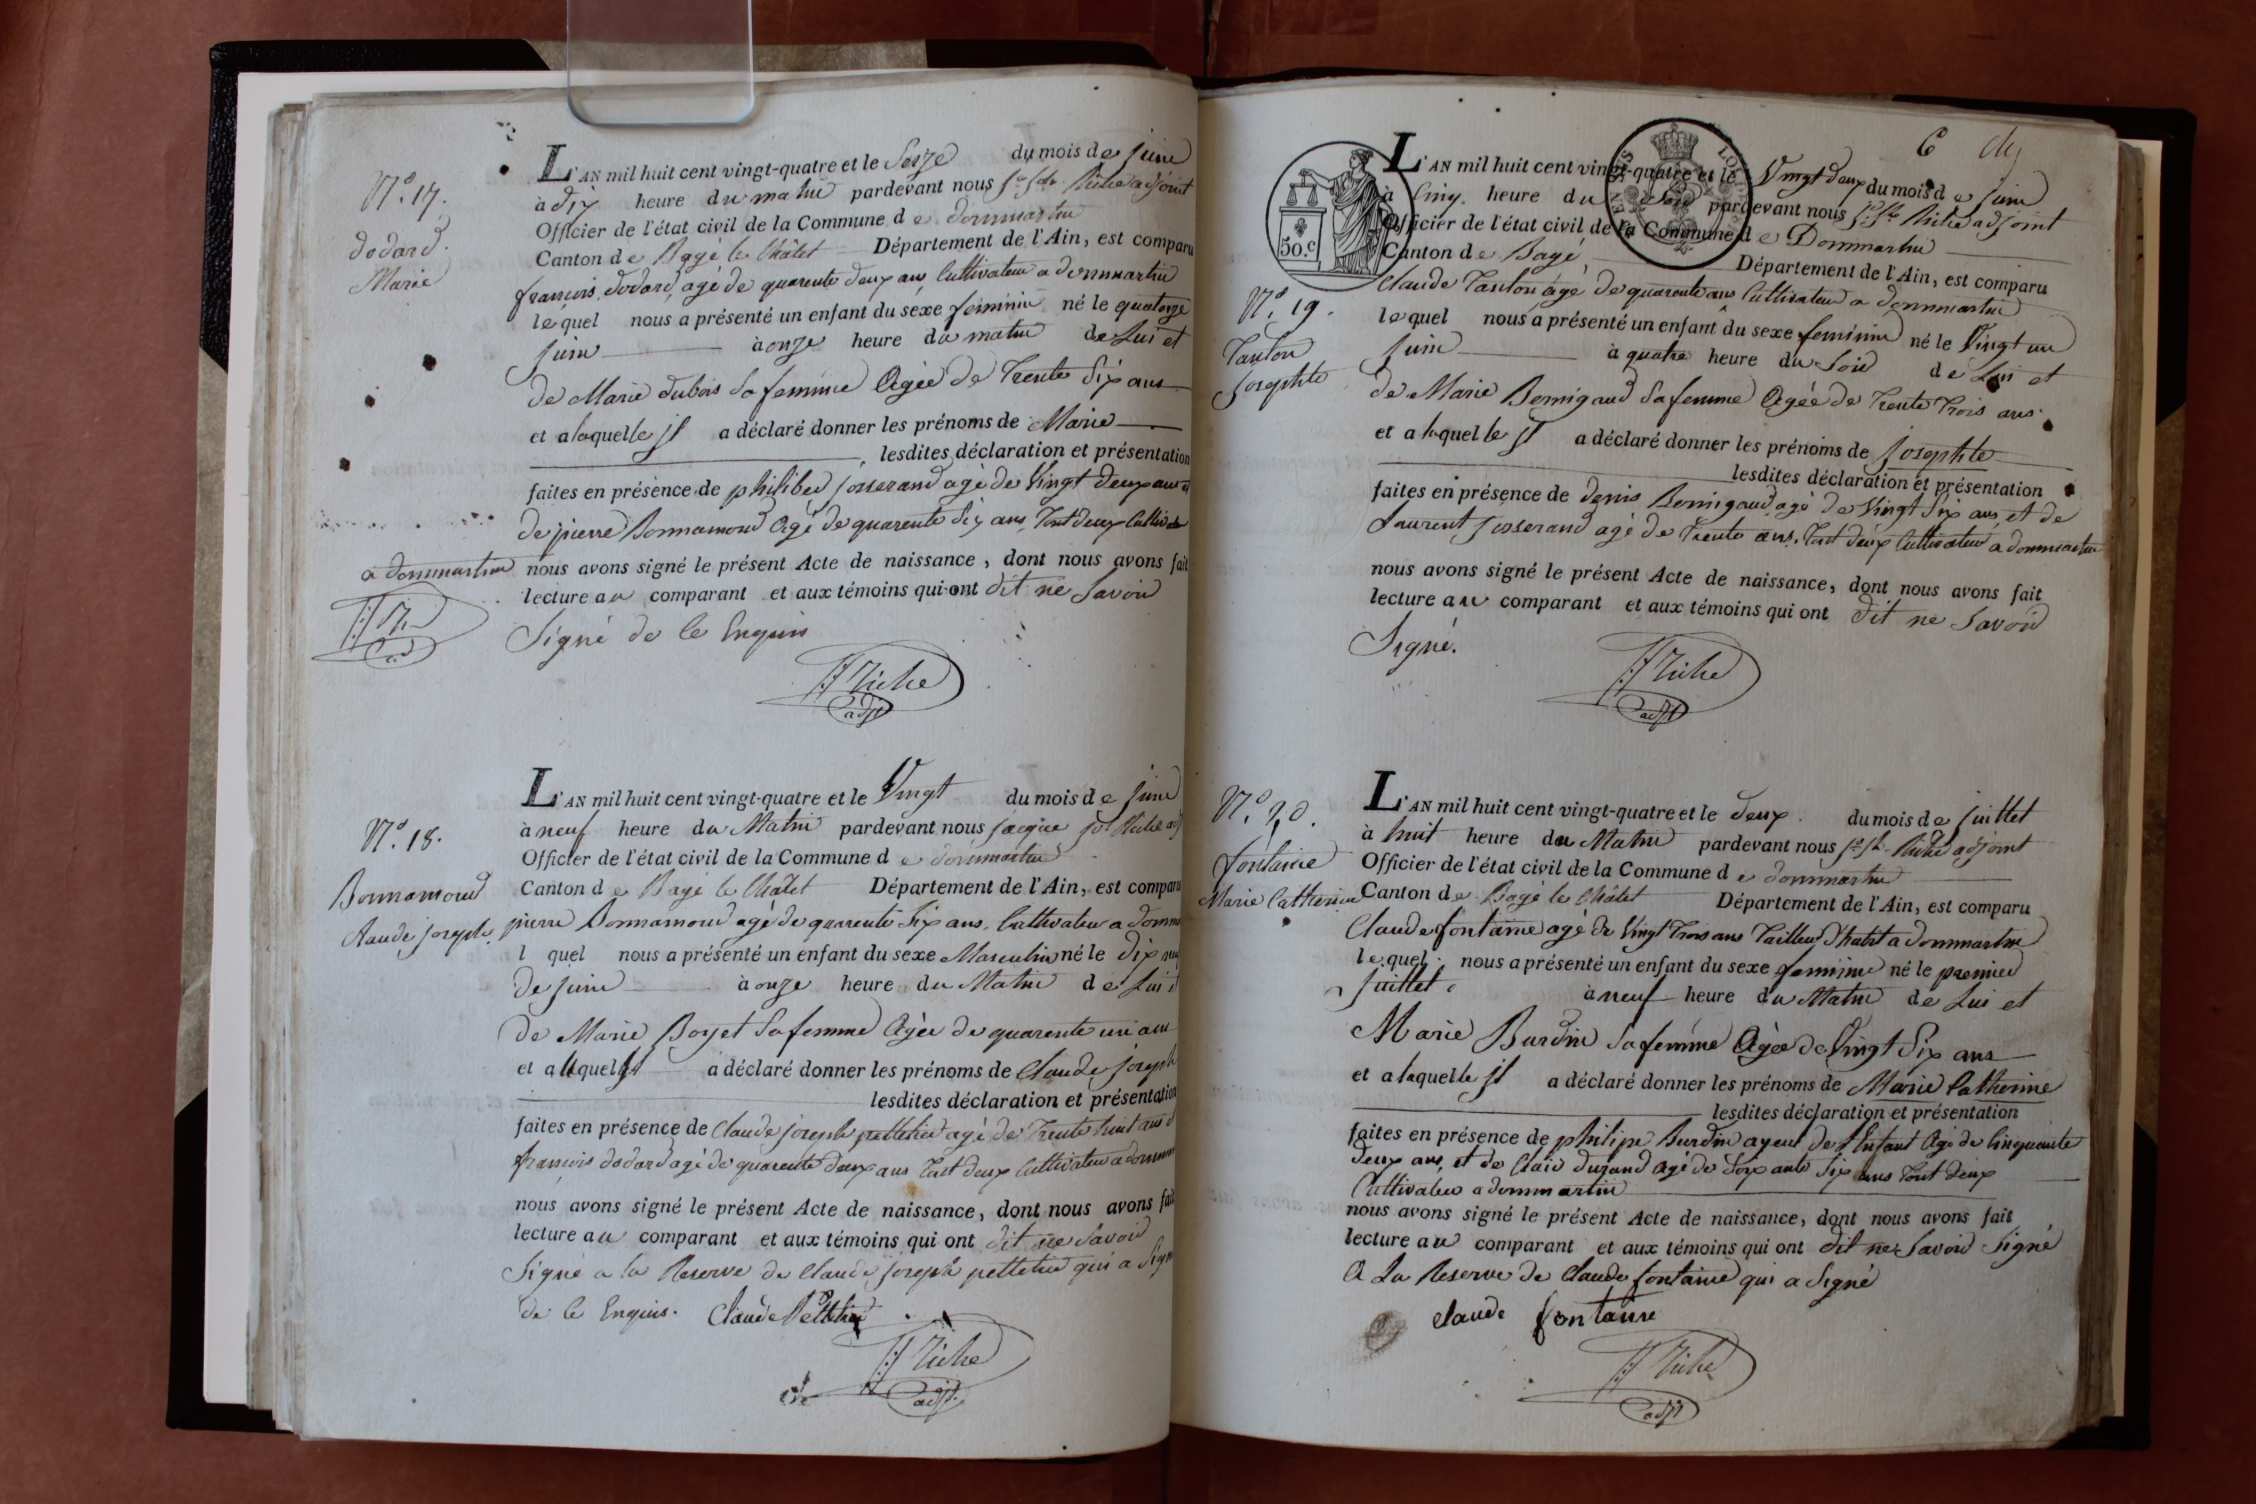 N.º 17.
dodard.
Marie
L'AN mil huit cent vingt-quatre et le Seize du mois de juin
à dix heure du matin pardevant nous jq. jph. Riche adjoint
Officier de l'état civil de la Commune de dommartin
Canton de Bagé le Châtel Département de l'Ain, est comparu
françois dodard, agé de quarente deux ans Cultivateur a dommartin
lequel nous a présenté un enfant du sexe feminin né le quatorze
juin à onze heure du matin de Lui et
de Marie dubois sa femme Agée de Trente Six ans
et a laquelle jl a déclaré donner les prénoms de Marie
lesdites déclaration et présentation
faites en présence de philiber josserand agé de Vingt deux ans et
de pierre Bonnamour Agé de quarente Six ans Tout deux Cultivateur
a dommartin nous avons signé le présent Acte de naissance, dont nous avons fait
lecture au comparant et aux témoins qui ont dit ne Savoir
Signé de Ce Enquis
Riche
adjt
N.º 18.
Bonnamour
Claude joseph.
L'AN mil huit cent vingt-quatre et le Vingt du mois de juin
à neuf heure du Matin pardevant nous jacque jph Riche adj
Officier de l'état civil de la Commune de dommartin
Canton de Bagé le Châtel Département de l'Ain, est comparu
pierre Bonnamour agé de quarente Six ans, Cultivateur a domm
l quel nous a présenté un enfant du sexe Masculin né le dix neuf
de juin à onze heure du Matin de Lui et
de Marie Boyet Sa femme Agée de quarente un ans
et a laquel jl a déclaré donner les prénoms de Claude joseph
lesdites déclaration et présentation
faites en présence de Claude joseph pelletier agé de Trente huit ans et
françois dodard agé de quarente deux ans Tout deux Cultivateur a domm
nous avons signé le présent Acte de naissance, dont nous avons fait
lecture au comparant et aux témoins qui ont dit ne Savoir
Signé a la Reserve de Claude joseph pelletier qui a Signé
de Ce Enquis. Claude Pelletier
Riche
adjt.
6
50.c
L'AN mil huit cent vingt-quatre et le Vingt deux du mois de juin
à Cinq heure du Soir pardevant nous jq. jph Riche adjoint
Officier de l'état civil de la Commune de Dommartin
Canton de Bagé Département de l'Ain, est comparu
N.º 19.
Tanton
Josephte
Claude Tanton agé de quarente ans Cultivateur a dommartin
lequel nous a présenté un enfant du sexe feminin né le Vingt un
juin à quatre heure du Soir de Lui et
de Marie Bernigaud Sa femme Agée de Trente Trois ans.
et a laquelle jl a déclaré donner les prénoms de Josephte
lesdites déclaration et présentation
faites en présence de denis Bernigaud agé de Vingt Six ans et de
Laurent josserand agé de Trente ans, Tout deux Cultivateur a dommartin
nous avons signé le présent Acte de naissance, dont nous avons fait
lecture au comparant et aux témoins qui ont dit ne Savoir
Signé.
Riche
adjt
N.º 20.
fontaine
Marie Catherine
L'AN mil huit cent vingt-quatre et le deux du mois de juillet
à huit heure du Matin pardevant nous jq. jh. Riche adjoint
Officier de l'état civil de la Commune de dommartin
Canton de Bagé le Châtel Département de l'Ain, est comparu
Claude fontaine agé de Vingt Trois ans Tailleur d'habit a dommartin
lequel nous a présenté un enfant du sexe feminine né le premier
juillet à neuf heure du Matin de Lui et
Marie Burdin sa femme Agée de Vingt Six ans
et a laquelle jl a déclaré donner les prénoms de Marie Catherine
lesdites déclaration et présentation
faites en présence de philipe Burdin ayeul de l'Enfant Agé de Cinquante
deux ans, et de Clair durand agé de Soixante Six ans Tout deux
Cultivateur a dommartin
nous avons signé le présent Acte de naissance, dont nous avons fait
lecture au comparant et aux témoins qui ont dit ne Savoir Signé
A La Reserve de Claude fontaine qui a Signé
claude fontaine
Riche
adjt